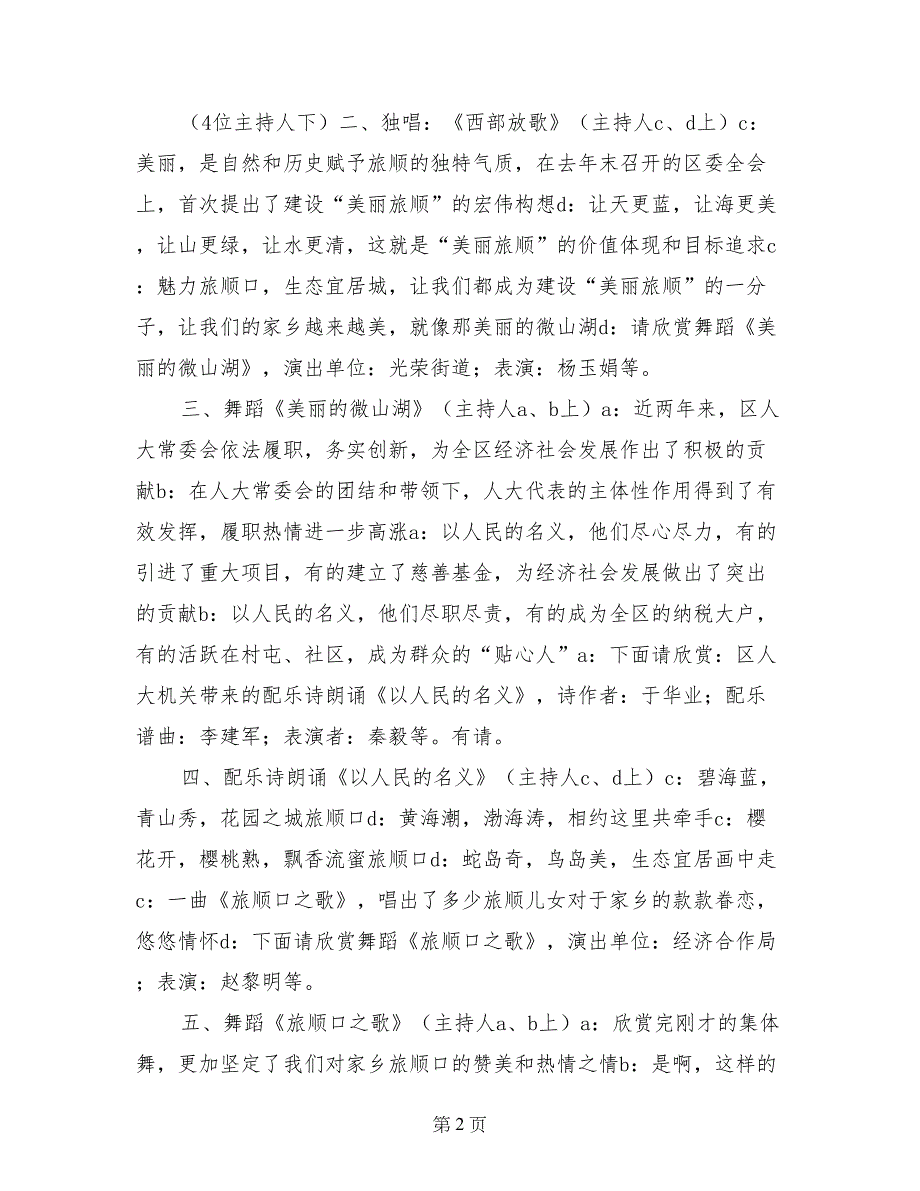 （4位主持人下）二、独唱：《西部放歌》（主持人c、d上）c：
美丽，是自然和历史赋予旅顺的独特气质，在去年末召开的区委全会
上，首次提出了建设“美丽旅顺”的宏伟构想d：让天更蓝，让海更美
，让山更绿，让水更清，这就是“美丽旅顺”的价值体现和目标追求c
：魅力旅顺口，生态宜居城，让我们都成为建设“美丽旅顺”的一分
子，让我们的家乡越来越美，就像那美丽的微山湖d：请欣赏舞蹈《美
丽的微山湖》，演出单位：光荣街道；表演：杨玉娟等。
三、舞蹈《美丽的微山湖》（主持人a、b上）a：近两年来，区人
大常委会依法履职，务实创新，为全区经济社会发展作出了积极的贡
献b：在人大常委会的团结和带领下，人大代表的主体性作用得到了有
效发挥，履职热情进一步高涨a：以人民的名义，他们尽心尽力，有的
引进了重大项目，有的建立了慈善基金，为经济社会发展做出了突出
的贡献b：以人民的名义，他们尽职尽责，有的成为全区的纳税大户，
有的活跃在村屯、社区，成为群众的“贴心人”a：下面请欣赏：区人
大机关带来的配乐诗朗诵《以人民的名义》，诗作者：于华业；配乐
谱曲：李建军；表演者：秦毅等。有请。
四、配乐诗朗诵《以人民的名义》（主持人c、d上）c：碧海蓝，
青山秀，花园之城旅顺口d：黄海潮，渤海涛，相约这里共牵手c：樱
花开，樱桃熟，飘香流蜜旅顺口d：蛇岛奇，鸟岛美，生态宜居画中走
c：一曲《旅顺口之歌》，唱出了多少旅顺儿女对于家乡的款款眷恋，
悠悠情怀d：下面请欣赏舞蹈《旅顺口之歌》，演出单位：经济合作局
；表演：赵黎明等。
五、舞蹈《旅顺口之歌》（主持人a、b上）a：欣赏完刚才的集体
舞，更加坚定了我们对家乡旅顺口的赞美和热情之情b：是啊，这样的
第 2 页